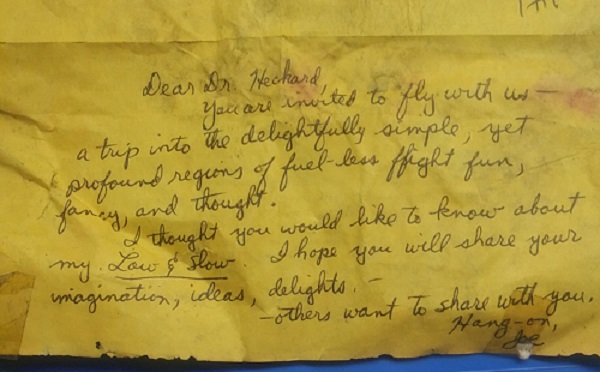 Dear Dr. Heckard,
You are invited to fly with us —
a trip into the delightfully simple, yet
profound regions of fuel-less flight fun,
fancy, and thought.
I thought you would like to know about
my Low & Slow I hope you will share your
imagination, ideas, delights. —
— others want to share with you.
Hang-on,
Joe